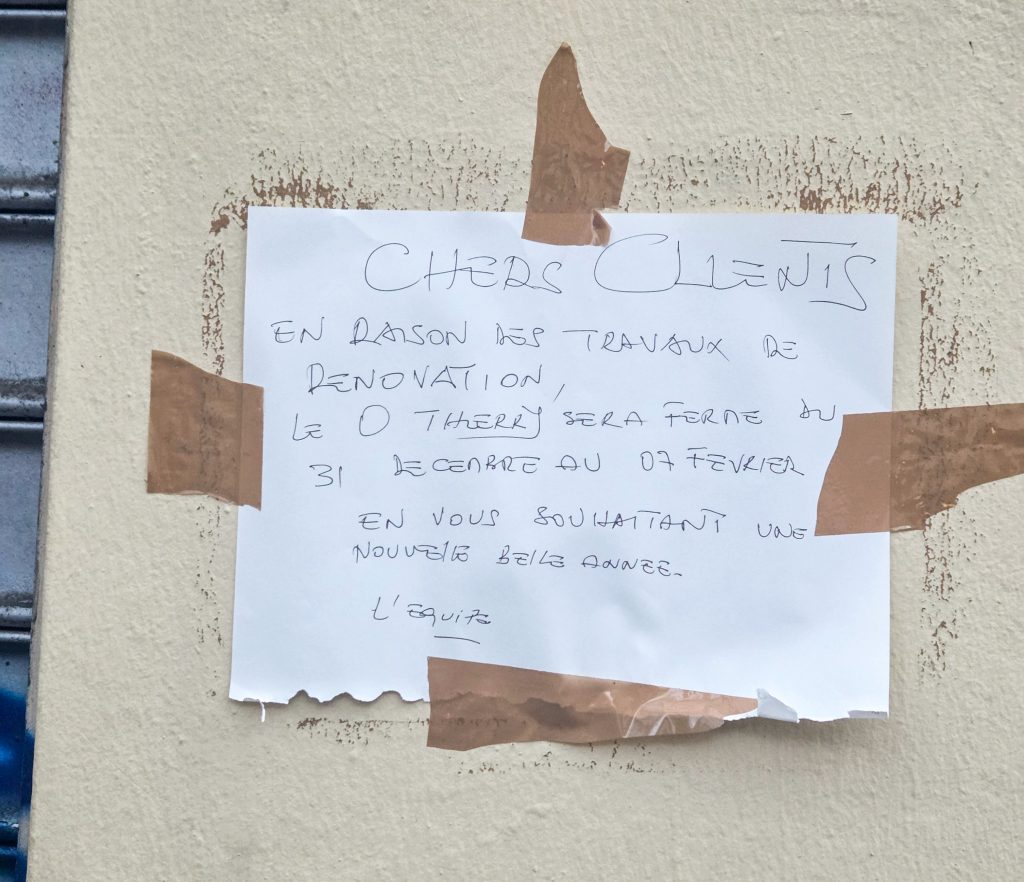 CHERS CLIENTS
EN RAISON DES TRAVAUX DE
RENOVATION,
LE O THIERRY SERA FERME DU
31 DECEMBRE AU 07 FEVRIER
EN VOUS SOUHAITTANT UNE
NOUVELLE BELLE ANNEE.
L'EQUIPE